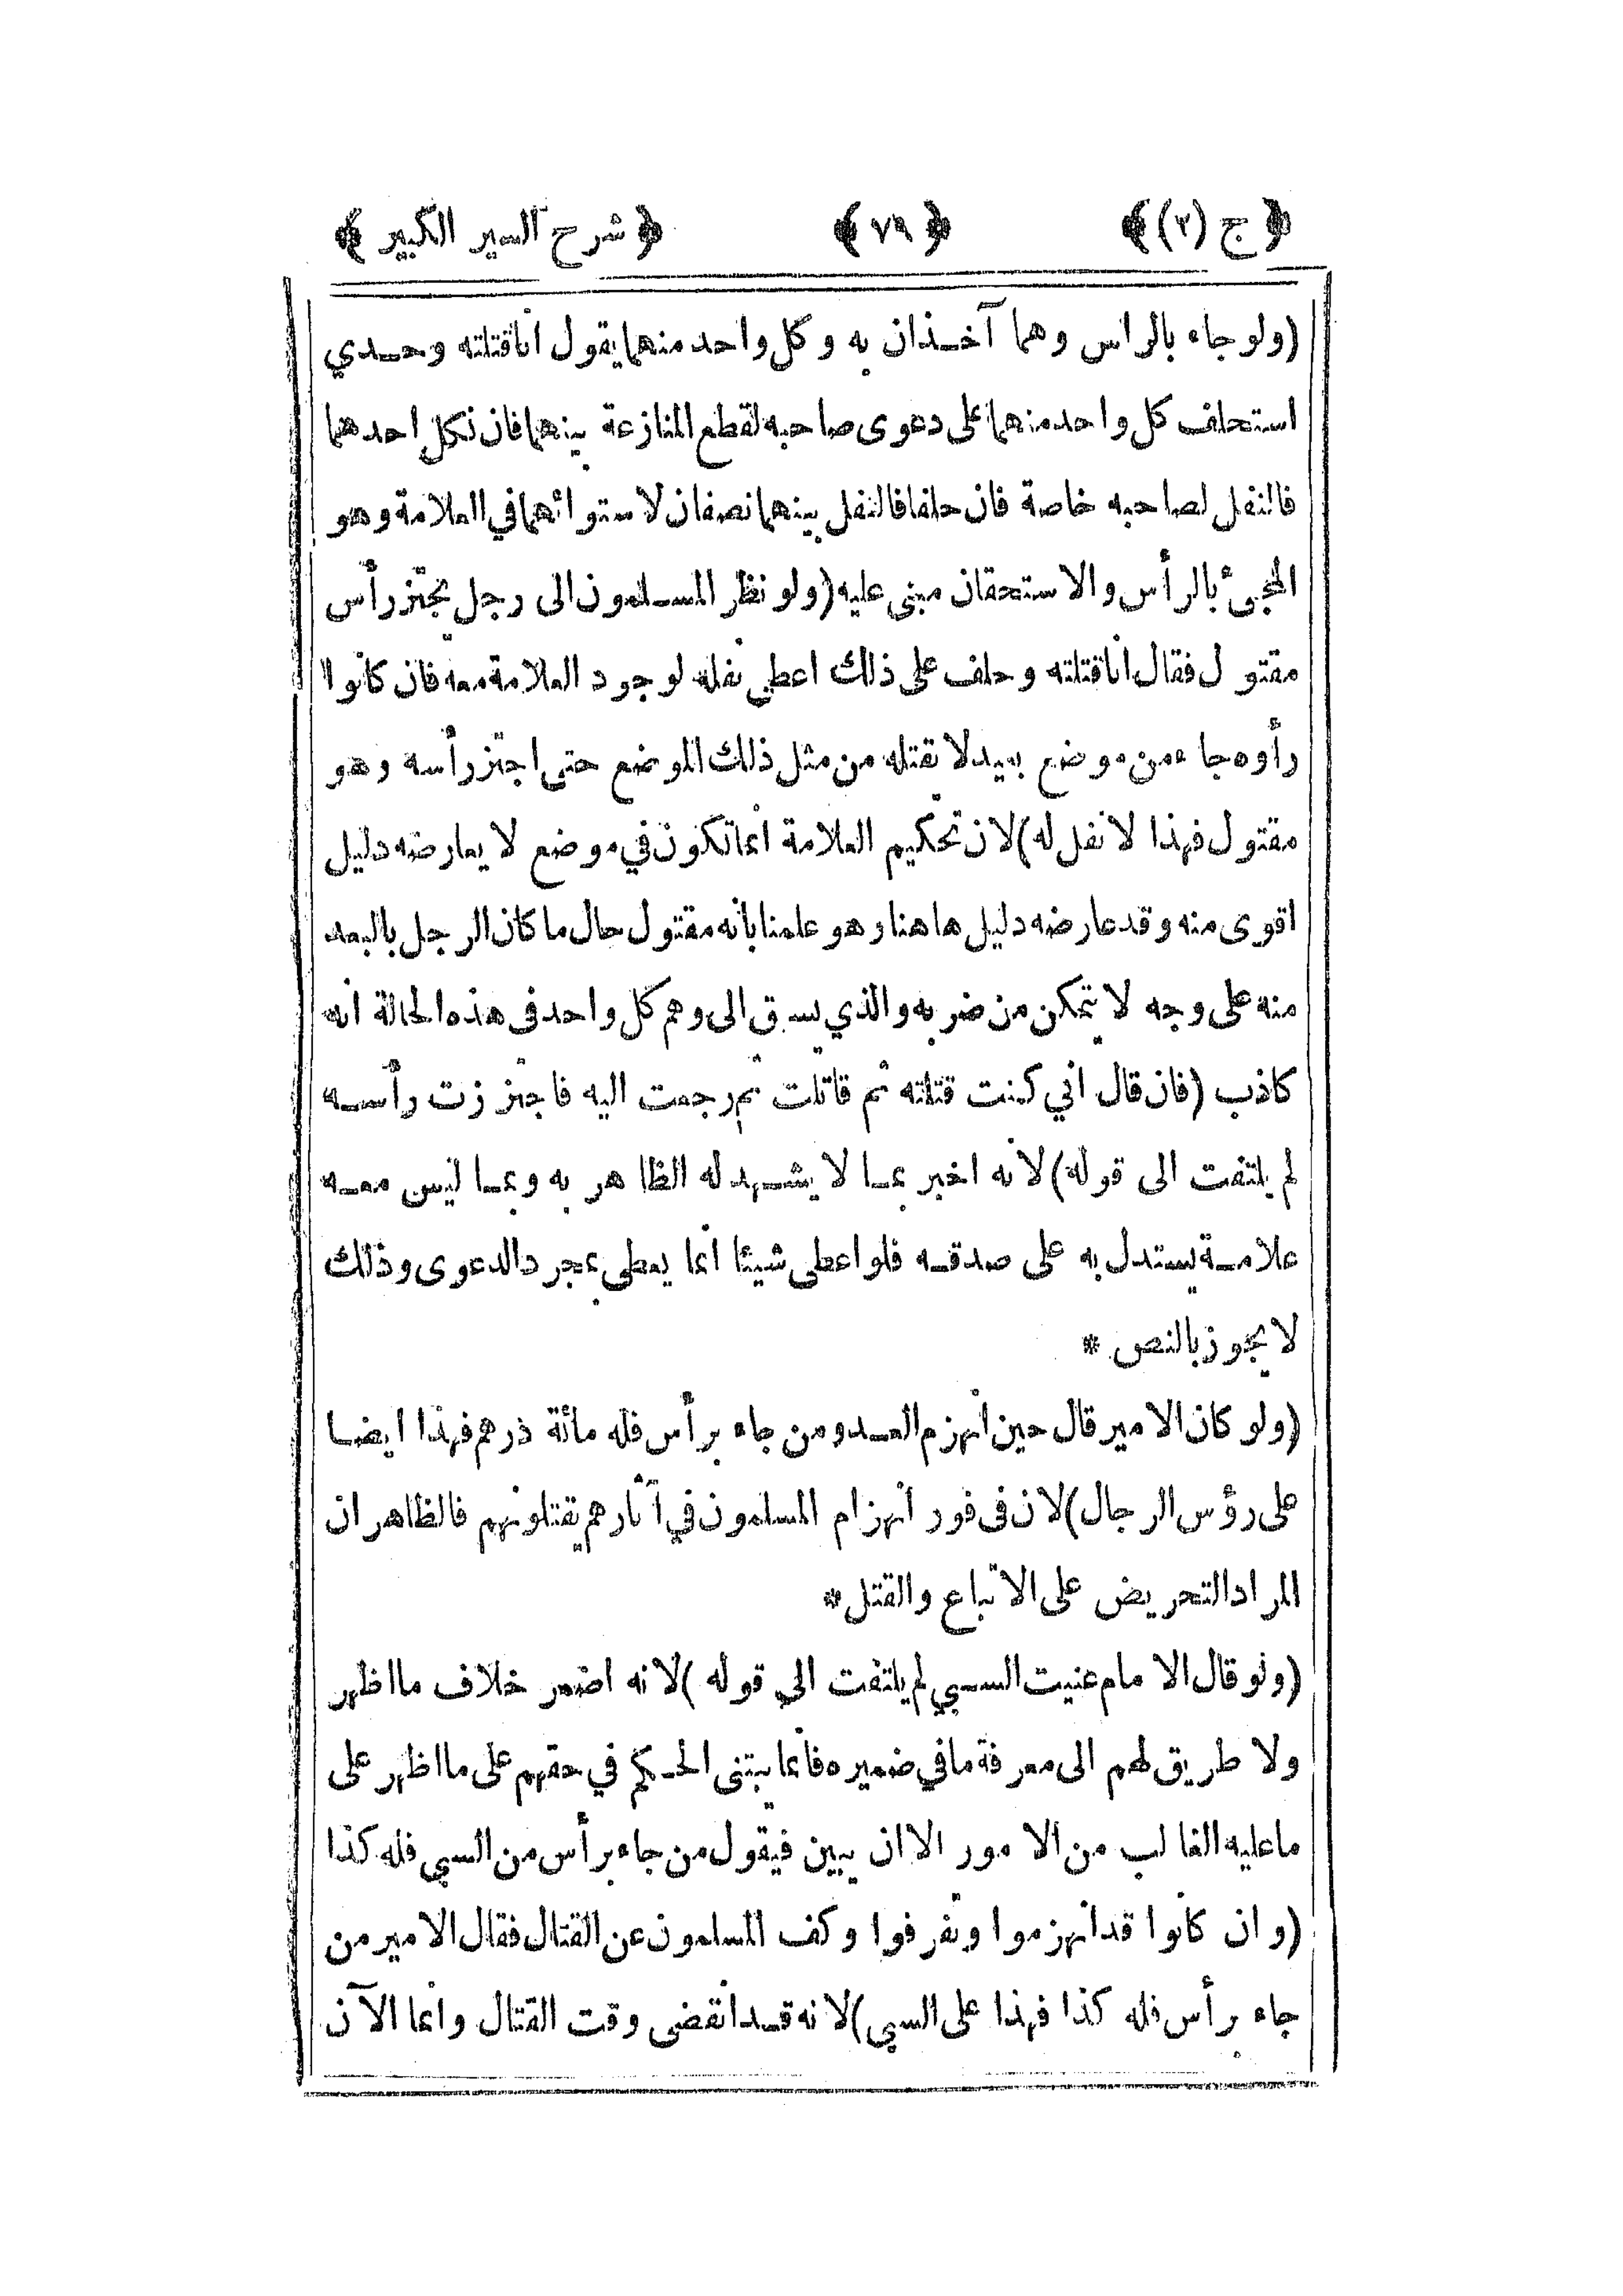 ﴿ ج (٢) ﴾ ﴿ ٧٩ ﴾ ﴿ شرح السير الكبير ﴾
(ولو جاء بالراس وهما آخذان به وكل واحد منهما يقول انا قتلته وحدي
استحلف كل واحد منهما على دعوى صاحبه لقطع المنازعة بينهما فان نكل احدهما
فالنفل لصاحبه خاصة فان حلفا فالنفل بينهما نصفان لاستوائهما في العلامة وهو
المجيئ بالرأس والاستحقان مبنى عليه (ولو نظر المسلمون الى رجل يجتز رأس
مقتول فقال انا قتلته وحلف على ذلك اعطى نفله لوجود العلامة معه فان كانوا
رأوه جاء من موضع بعيد لا يقتله من مثل ذلك الموضع حتى اجتز رأسه وهو
مقتول فهذا لا نفل له) لان تحكيم العلامة انما تكون في موضع لا يعارضه دليل
اقوى منه وقد عارضه دليل هاهنا وهو علمنا بانه مقتول حال ما كان الرجل بالبعد
منه على وجه لا يتمكن من ضربه والذي يسبق الى وهم كل واحد فى هذه الحالة انه
كاذب (فان قال اني كنت قتلته ثم قاتلت ثم رجعت اليه فاجتززت رأسه
لم يلتفت الى قوله) لانه اخبر بما لا يشهد له الظاهر به وبما ليس معه
علامة يستدل به على صدقه فلو اعطى شيئا انما يعطى بمجرد الدعوى وذلك
لا يجوز بالنص *
(ولو كان الامير قال حين انهزم العدو من جاء برأس فله مائة درهم فهذا ايضا
على رؤس الرجال) لان فى فور انهزام المسلمون في آثارهم يقتلونهم فالظاهر ان
المراد التحريض على الاتباع والقتل *
(ولو قال الامام عنيت السبي لم يلتفت الى قوله) لانه اضمر خلاف ما اظهر
ولا طريق لهم الى معرفة ما في ضميره فانما يبتنى الحكم في حقهم على ما اظهر على
ما عليه الغالب من الامور الا ان يبين فيقول من جاء برأس من السبي فله كذا
(وان كانوا قد انهزموا وتفرقوا وكف المسلمون عن القتال فقال الامير من
جاء برأس فله كذا فهذا على السبي) لانه قد انقضى وقت القتال وانما الآن